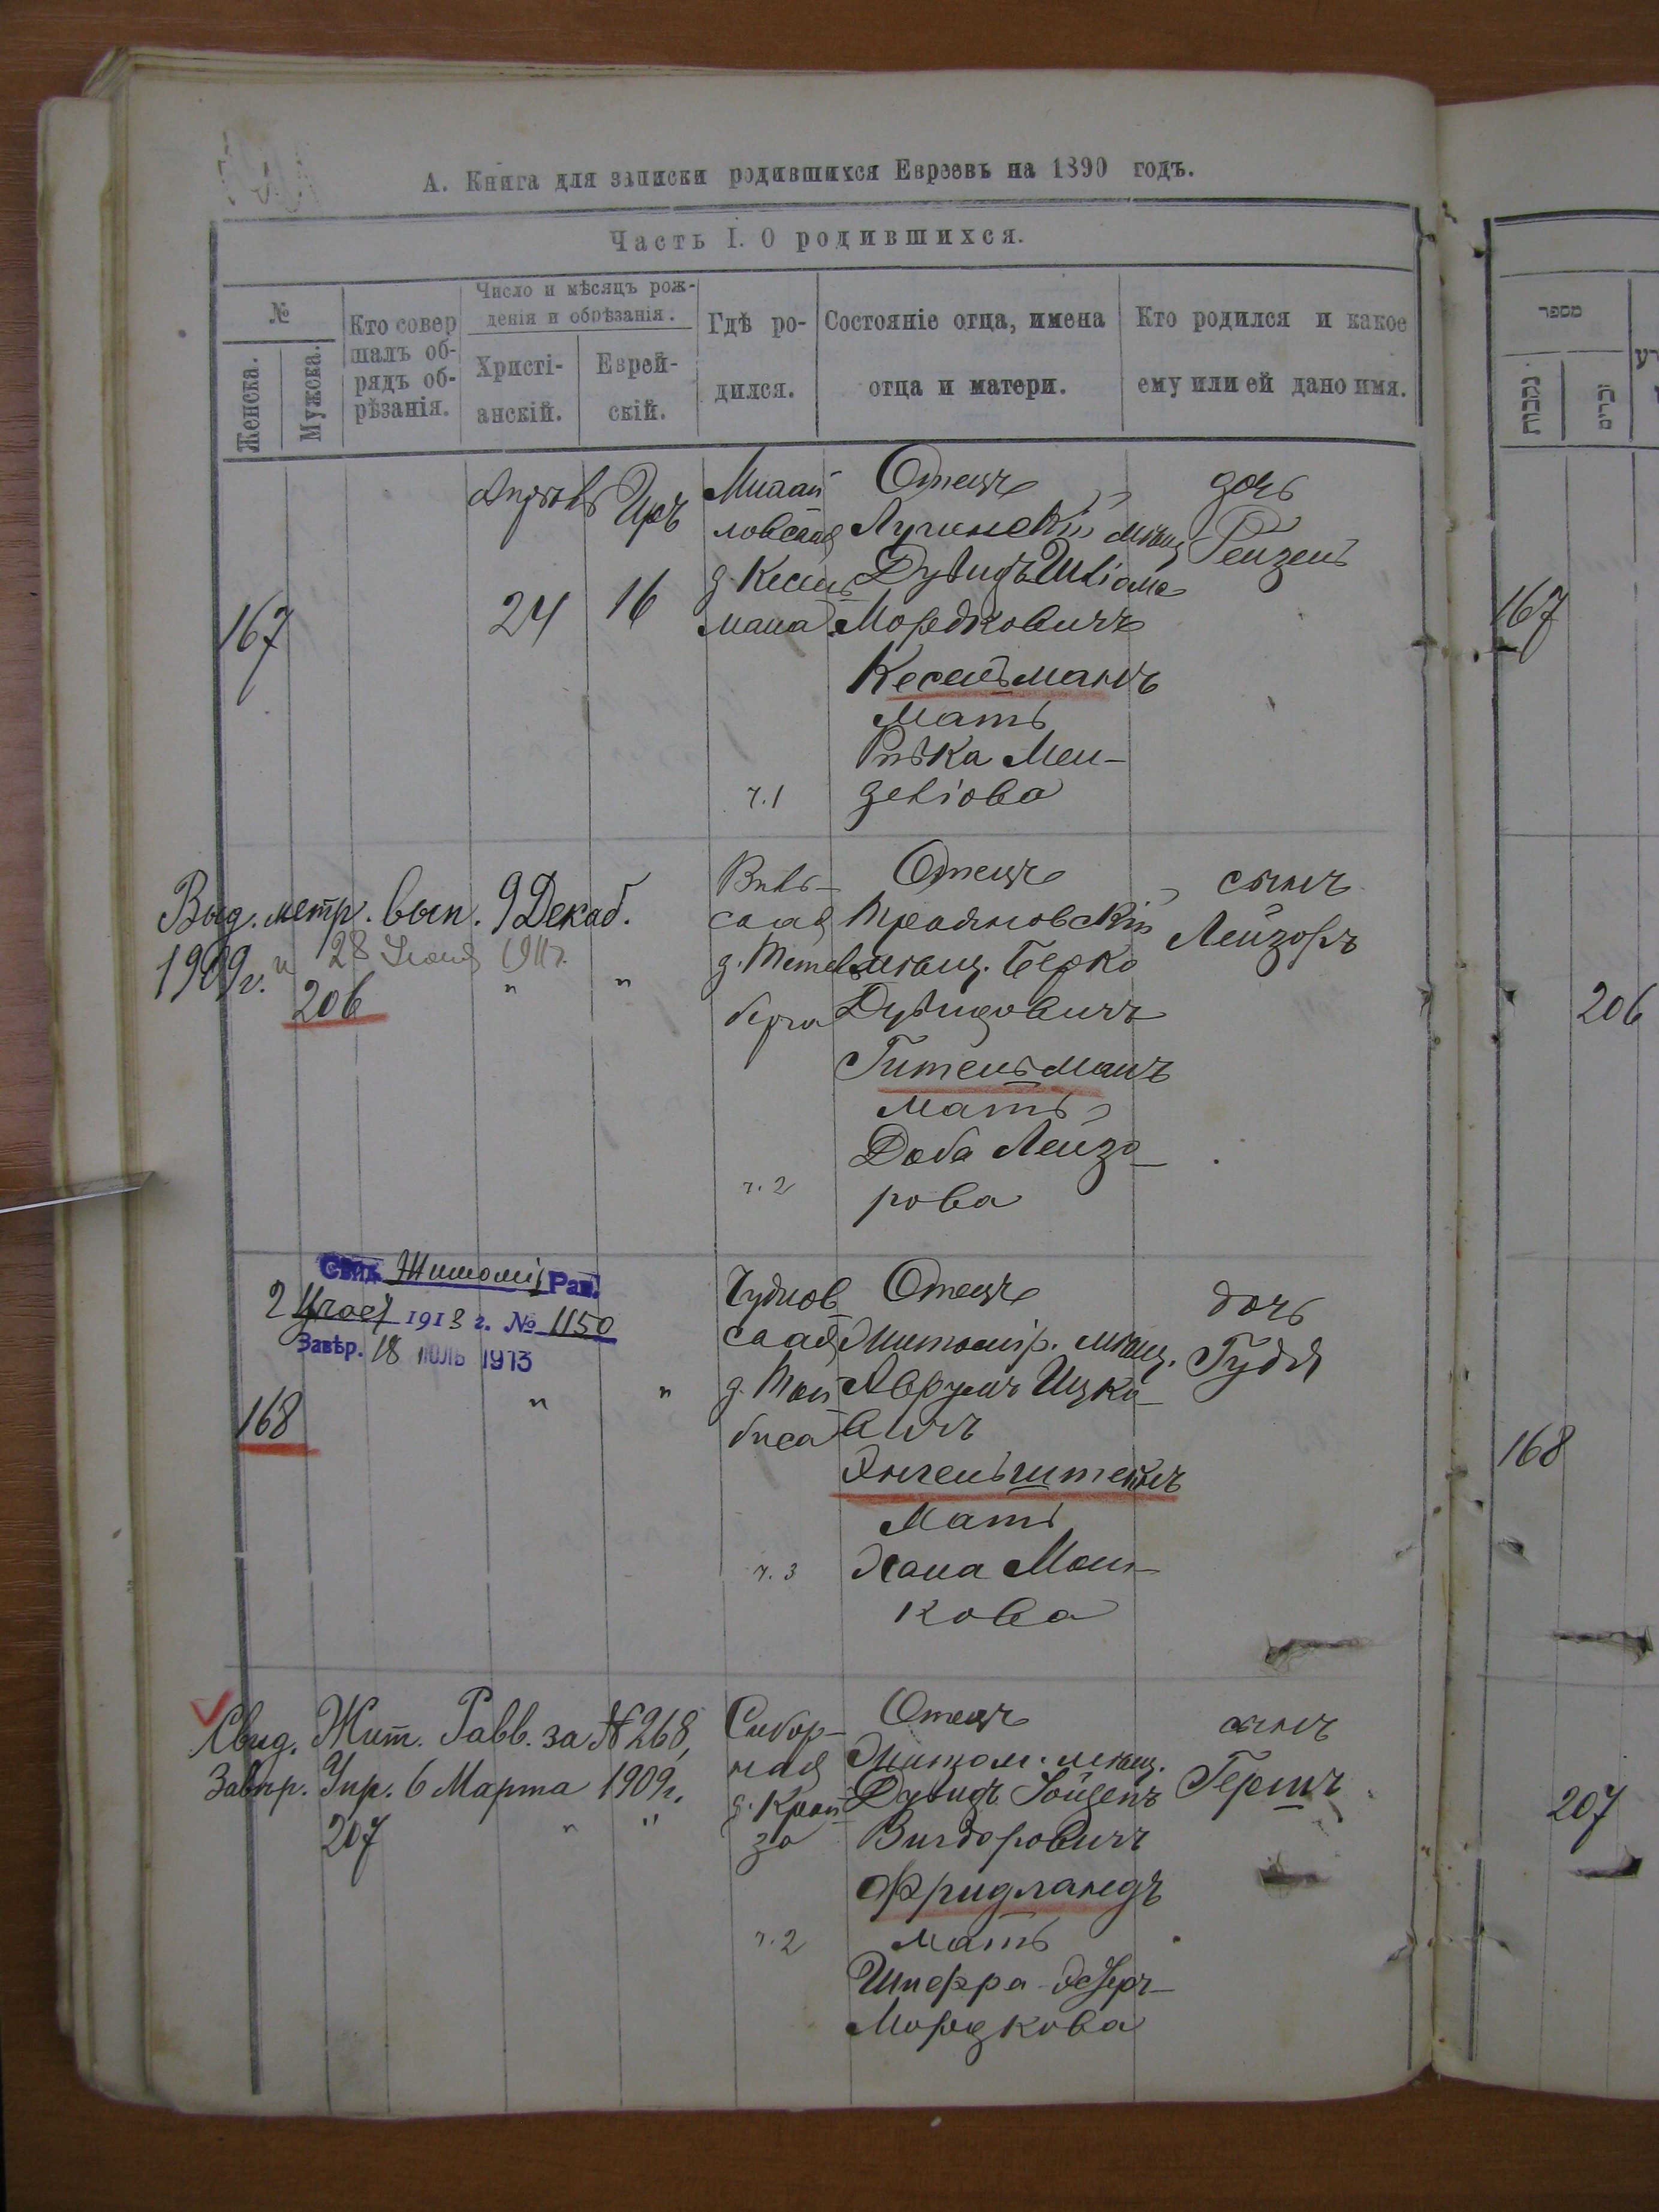 А. Книга для записки родившихся Евреевъ на 1890 годъ.
Часть I. О родившихся.
№
Женска.
Мужска.
Кто совер
шалъ об-
рядъ об-
рѣзанія.
Число и мѣсяцъ рож-
денія и обрѣзанія.
Христі-
анскій.
Еврей-
скій.
Гдѣ ро-
дился.
Состояніе отца, имена
отца и матери.
Кто родился и какое
ему или ей дано имя.
167
24
16
Михай
ловская
д. Кесель
мана
ч.1
Отецъ
Лугинскій мѣщ
Дувидъ Шліома
Мордковичъ
Кесельманъ
Мать
Ривка Мен-
деліова
дочь
Рейзель
Выд. метр. вып. 9 Декаб.
1909г. и 28 1911г.
206
" "
Вил
ская
д. Тетель
берга
ч. 2
Отецъ
Трояновскій
мѣщ. Берко
Дувидовичъ
Гительманъ
мать
Доба Лейзо-
рова
сынъ
Лейзоръ
Свид. Житомір Рав.
2 Участ 1913 г. № 1150
Завѣр. 18 ІЮЛЬ 1913
168
" "
Чуднов
ская
д. Той
биса
ч. 3
Отецъ
Житомір. мѣщ.
Аврумъ Ицко-
вичъ
Энгельштейнъ
Мать
Хана Мош-
кова
дочь
Гудя
Свид. Жит. Равв. за № 268,
Завѣр. Упр. 6 Марта 1909г.
207
" "
Собор-
ная
д. Край
за
ч. 2
Отецъ
Житом. мѣщ.
Дувидъ
Вигдоровичъ
Фридландъ
мать
Шпефра
Мордкова
сынъ
Гершъ
מספר
נקבות
זכרים
167
206
168
207